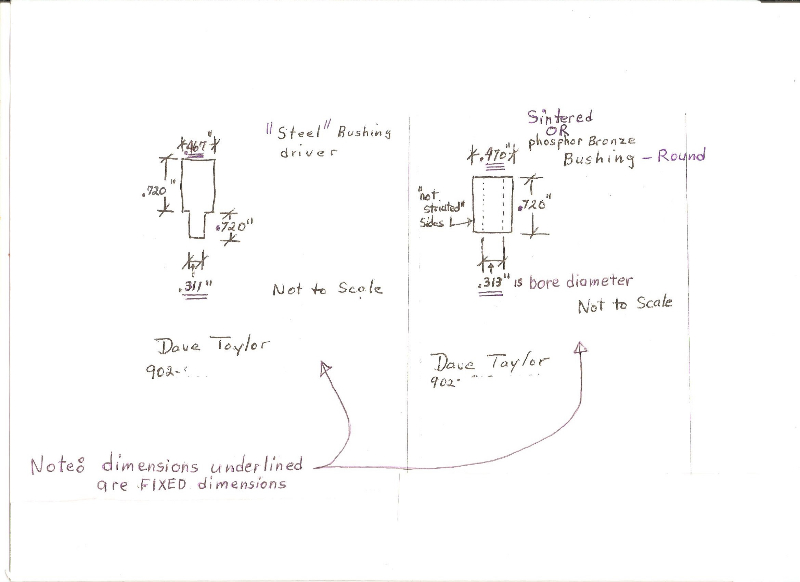 "Steel" Bushing
driver
.467"
.720"
.720"
.311"
Not to Scale
Dave Taylor
902-
Sintered
OR
phosphor Bronze
Bushing - Round
.470"
"not
striated"
sides
.720"
.313" is bore diameter
Not to Scale
Dave Taylor
902-
Note: dimensions underlined
are FIXED dimensions